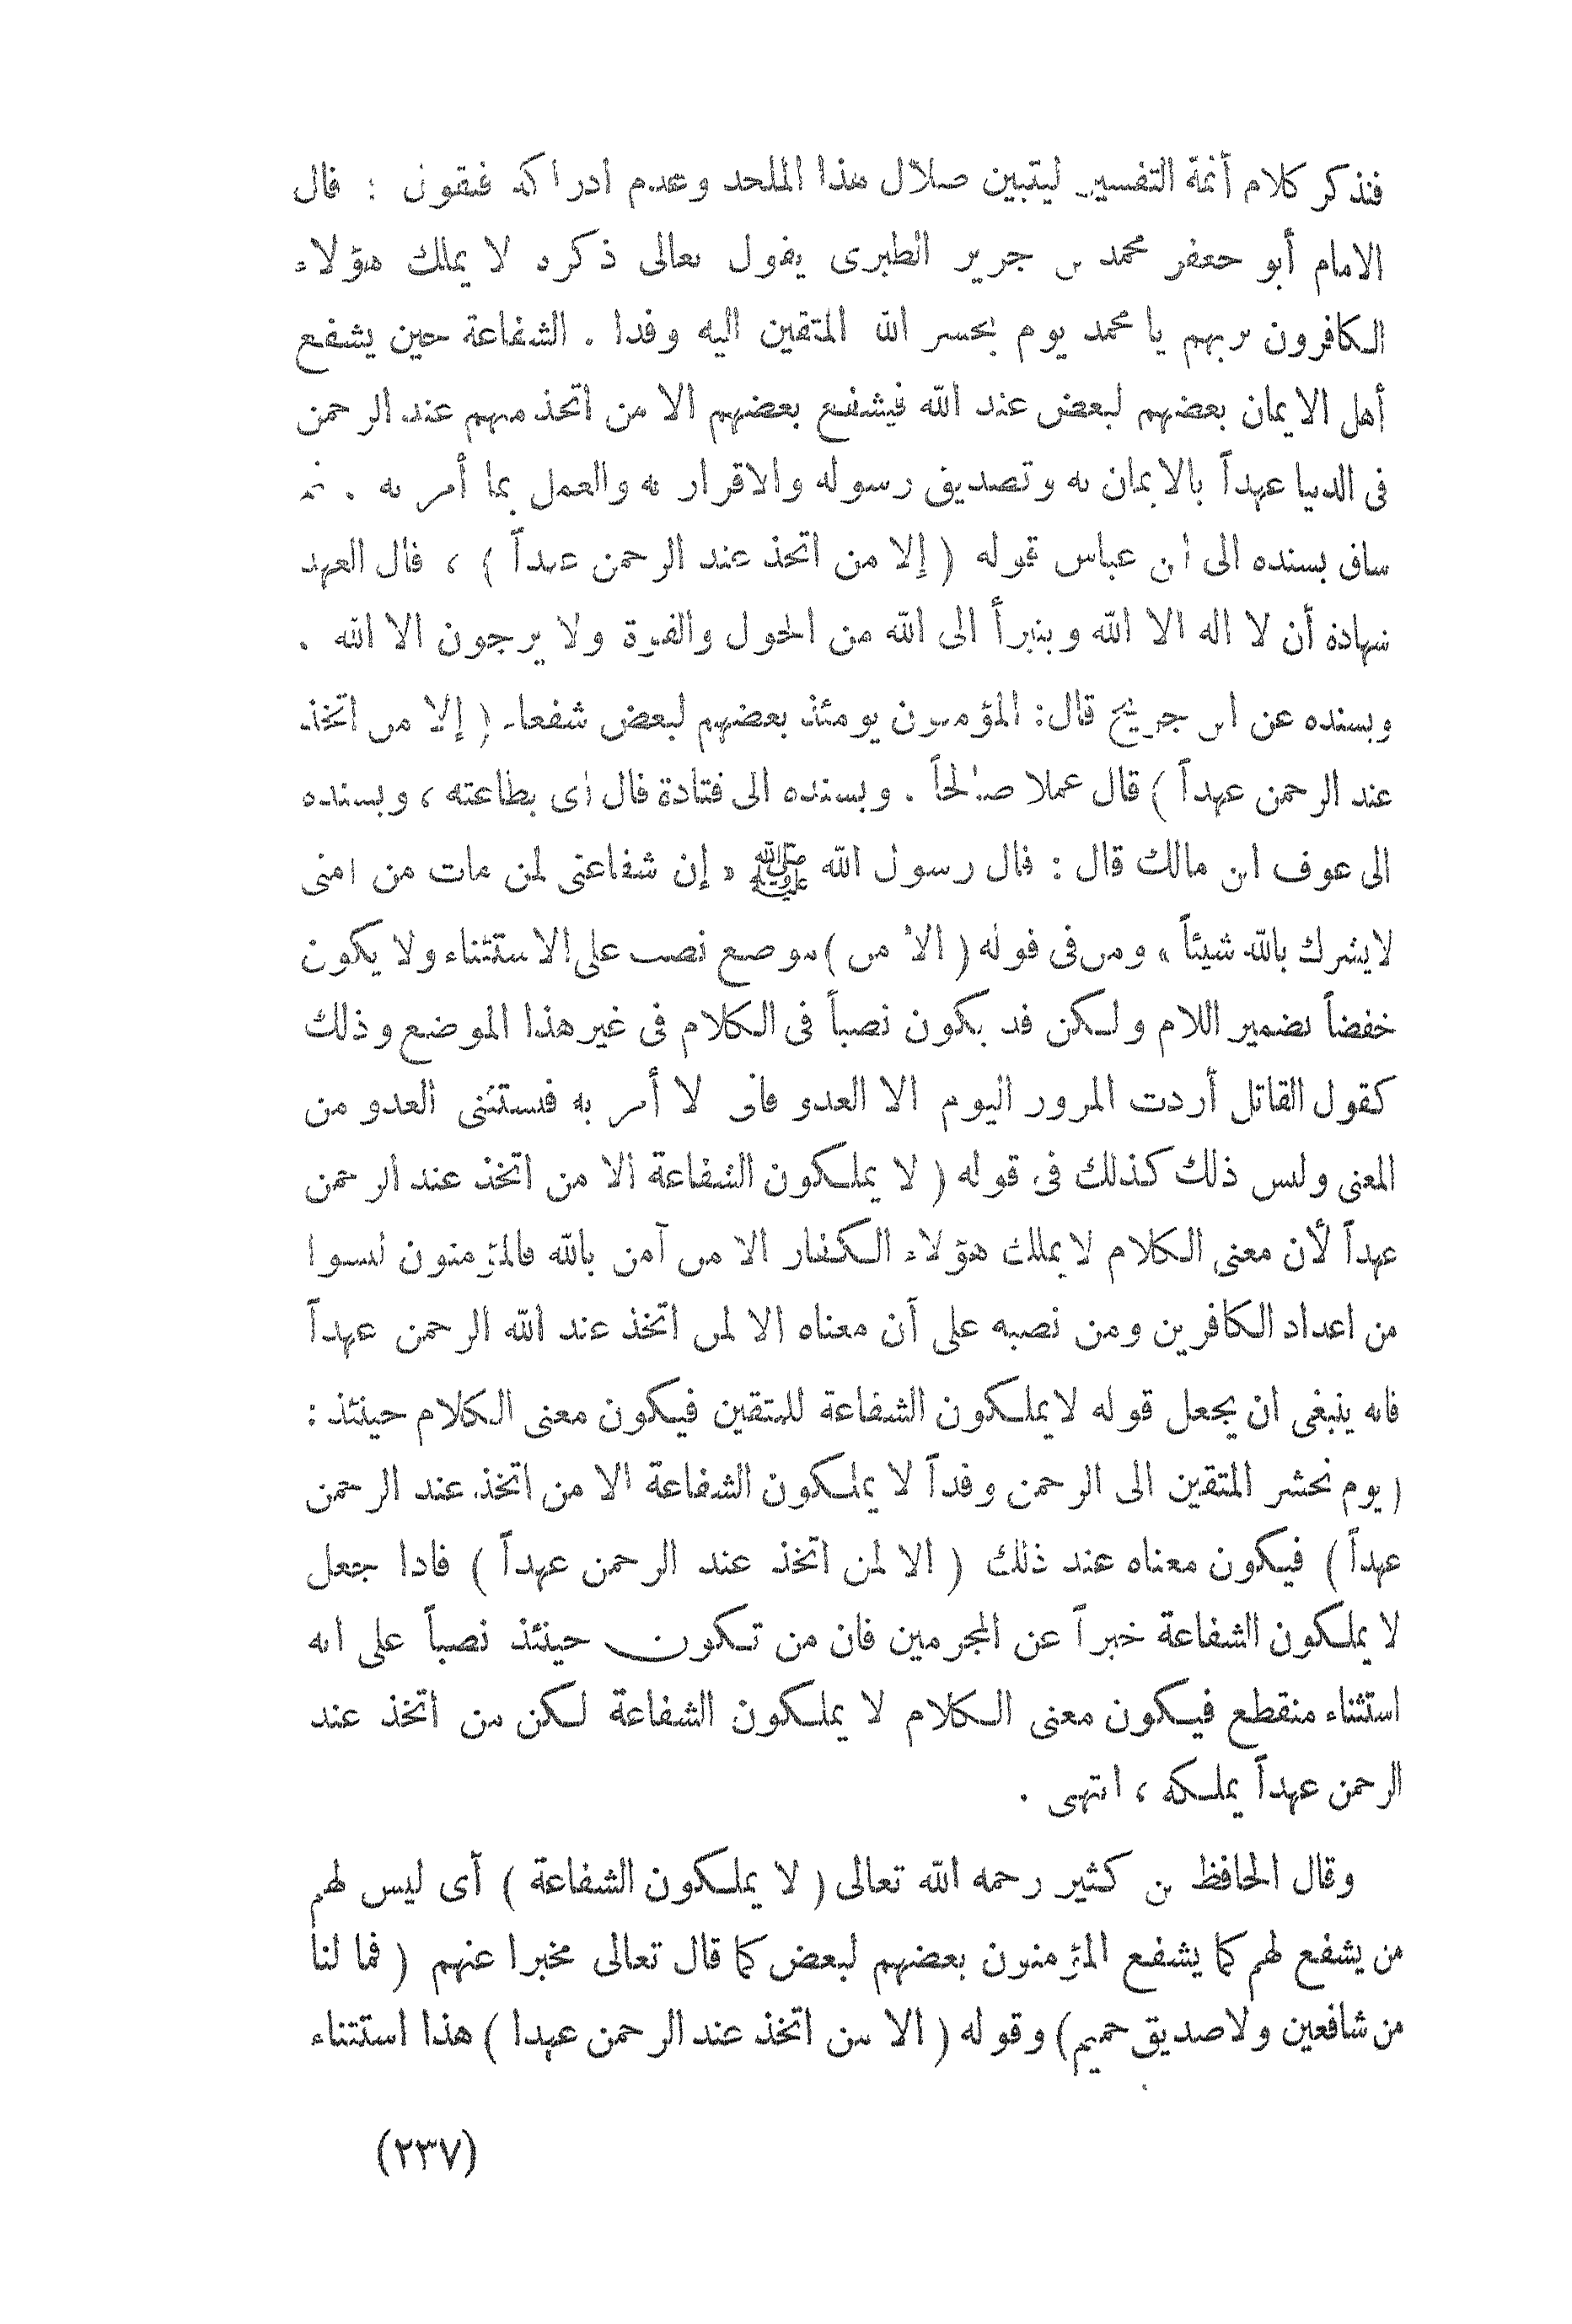 فنذكر كلام أئمة التفسير ليتبين ضلال هذا الملحد وعدم ادراكه فنقول : قال
الامام أبو جعفر محمد بن جرير الطبرى يقول تعالى ذكره لا يملك هؤلاء
الكافرون بربهم يا محمد يوم يحشر الله المتقين اليه وفدا . الشفاعة حين يشفع
أهل الايمان بعضهم لبعض عند الله فيشفع بعضهم الا من اتخذ منهم عند الرحمن
فى الدنيا عهداً بالايمان به وتصديق رسوله والاقرار به والعمل بما أمر به . ثم
ساق بسنده الى ابن عباس قوله ( إلا من اتخذ عند الرحمن عهداً ) ، قال العهد
شهادة أن لا اله الا الله ويتبرأ الى الله من الحول والقوة ولا يرجون الا الله .
وبسنده عن ابن جريج قال: المؤمنون يومئذ بعضهم لبعض شفعاء ( إلا من اتخذ
عند الرحمن عهداً ) قال عملا صالحاً . وبسنده الى قتادة قال أى بطاعته ، وبسنده
الى عوف ابن مالك قال : قال رسول الله ﷺ « إن شفاعتى لمن مات من امتى
لايشرك بالله شيئاً » ومن فى قوله ( الا من ) موضع نصب على الاستثناء ولا يكون
خفضاً بضمير اللام ولكن قد يكون نصباً فى الكلام فى غير هذا الموضع وذلك
كقول القائل أردت المرور اليوم الا العدو فانى لا أمر به فستثنى العدو من
المعنى وليس ذلك كذلك فى قوله ( لا يملكون الشفاعة الا من اتخذ عند الرحمن
عهداً لأن معنى الكلام لايملك هؤلاء الكفار الا من آمن بالله فالمؤمنون ليسوا
من اعداد الكافرين ومن نصبه على أن معناه الا لمن اتخذ عند الله الرحمن عهداً
فانه ينبغى ان يجعل قوله لايملكون الشفاعة للمتقين فيكون معنى الكلام حينئذ :
( يوم نحشر المتقين الى الرحمن وفداً لا يملكون الشفاعة الا من اتخذ عند الرحمن
عهداً ) فيكون معناه عند ذلك ( الا لمن اتخذ عند الرحمن عهداً ) فاذا جعل
لا يملكون الشفاعة خبراً عن المجرمين فان من تكون حينئذ نصباً على انه
استثناء منقطع فيكون معنى الكلام لا يملكون الشفاعة لكن من اتخذ عند
الرحمن عهداً يملكه ، انتهى .
وقال الحافظ بن كثير رحمه الله تعالى ( لا يملكون الشفاعة ) أى ليس لهم
من يشفع لهم كما يشفع المؤمنون بعضهم لبعض كما قال تعالى مخبرا عنهم ( فما لنا
من شافعين ولا صديق حميم ) وقوله ( الا من اتخذ عند الرحمن عهدا ) هذا استثناء
(٢٣٧)